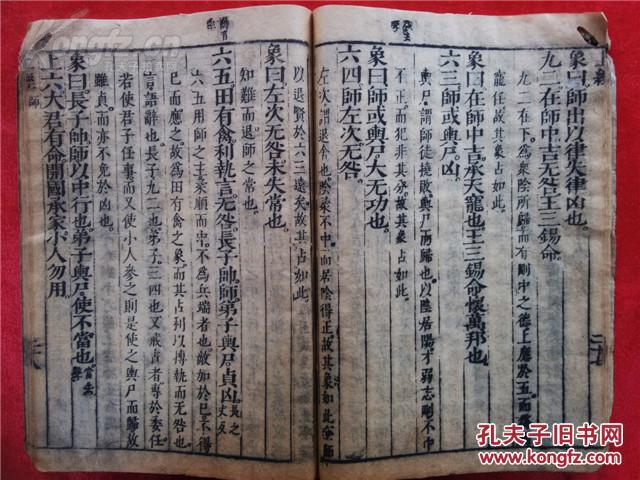 象曰師出以律失律凶也
九二在師中吉无咎王三錫命
九二在下爲衆陰所歸而有剛中之德上應於五而爲
寵任故其象占如此
象曰在師中吉承天寵也王三錫命懷萬邦也
六三師或輿尸凶
輿尸謂師徒撓敗輿尸而歸也以陰居陽才弱志剛不中
不正而犯非其分故其象占如此
象曰師或輿尸大无功也
六四師左次无咎
左次謂退舍也陰柔不中而居陰得正故其象如此全師
以退賢於六三遠矣故其占如此
象曰左次无咎未失常也
知難而退師之常也
六五田有禽利執言无咎長子帥師弟子輿尸貞凶長之丈反
六五用師之主柔順而中不爲兵端者也敵加於己不得
已而應之故爲田有禽之象而其占利以搏執而无咎也
言語辭也長子九二也弟子三四也又戒占者專於委任
若使君子任事而又使小人參之則是使之輿尸而歸故
雖貞而亦不免於凶也
象曰長子帥師以中行也弟子輿尸使不當也
上六大君有命開國承家小人勿用
上經
師
孔夫子旧书网
KONGFZ.COM